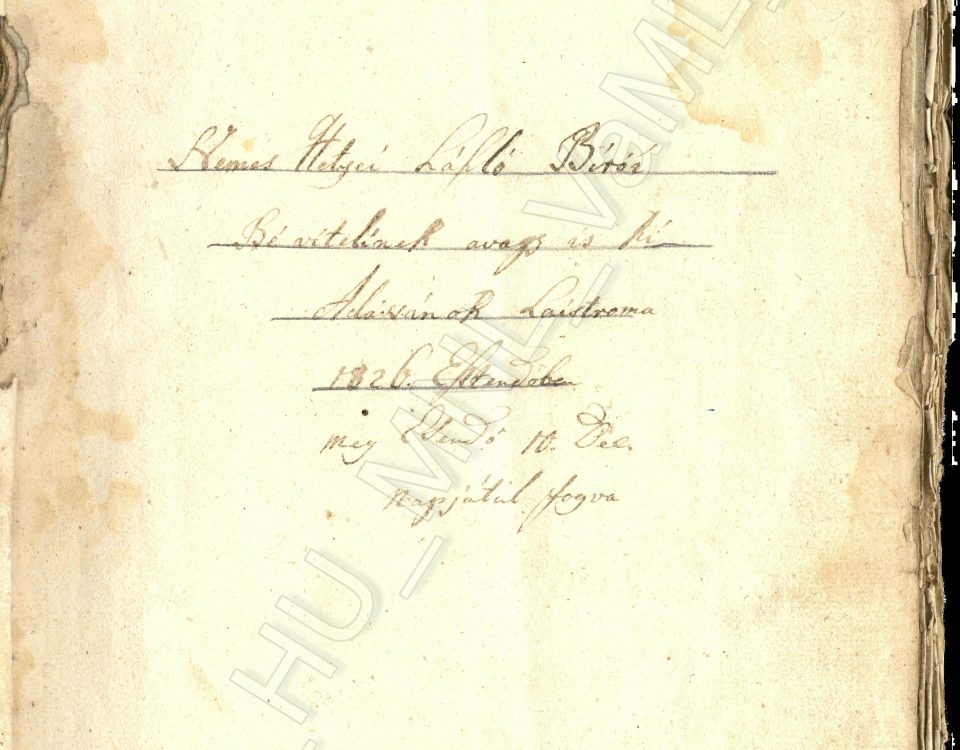 Nemes Hetyei Lásló Bírói
Bé vitelínek avagy is Ki
Adássának Laistroma
1826. Esztendőben
meg Esendő 10. Dec.
napjátúl fogva
HU_MNL_VaML